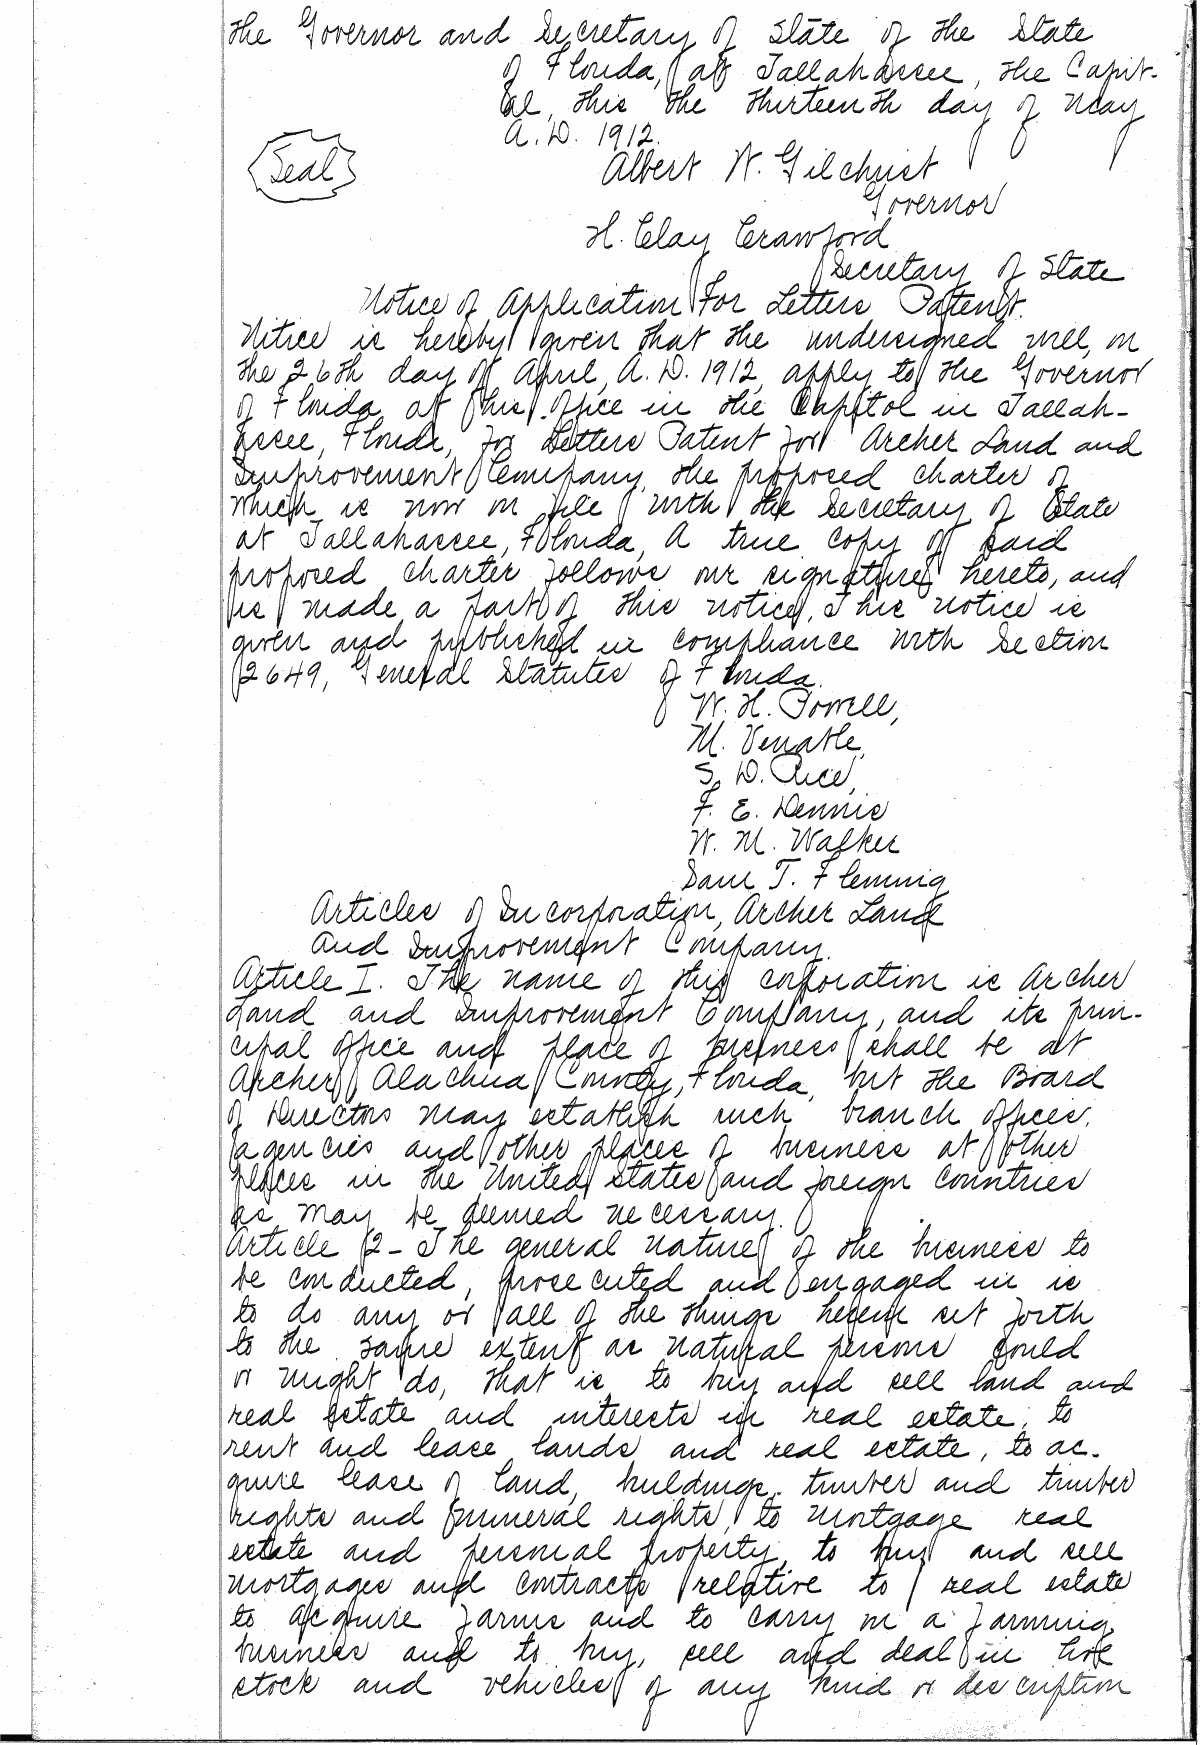 the Governor and Secretary of State of the State
of Florida, at Tallahassee, the Capit-
al, this the thirteenth day of May
A.D. 1912.
Seal
Albert W. Gilchrist
Governor
H. Clay Crawford
Secretary of State
Notice of Application For Letters Patent.
Nitice is hereby given that the undersigned will, on
the 26th day of April, A.D. 1912, apply to the Governor
of Florida, at his office in the Capitol in Tallah-
assee, Florida, for Letters Patent for Archer Land and
Improvement Company, the proposed charter of
which is now on file with the Secretary of State
at Tallahassee, Florida, A true copy of said
proposed charter follows our signatures hereto, and
is made a part of this notice. This notice is
given and published in compliance with Section
2649, General Statutes of Florida.
W. H. Powell,
M. Venable,
S. D. Rice,
F. E. Dennis
W. M. Walker
Sam T. Fleming
Articles of Incorporation, Archer Land
and Improvement Company.
Article I. The name of this corporation is Archer
Land and Improvement Company, and its prin-
cipal office and place of business shall be at
Archer, Alachua County, Florida, but the Board
of Directors may establish such branch offices,
agencies and other places of business at other
places in the United States and foreign countries
as may be deemed necessary.
Article 2- The general nature of the business to
be conducted, prosecuted and engaged in is
to do any or all of the things herein set forth
to the same extent as natural persons could
or might do, that is, to buy and sell land and
real estate and interests in real estate, to
rent and lease lands and real estate, to ac-
quire lease of land, buildings, timber and timber
rights and mineral rights, to mortgage real
estate and personal property, to buy and sell
mortgages and contracts relative to real estate
to acquire farms and to carry on a farming
business and to buy, sell and deal in live
stock and vehicles of any kind or description